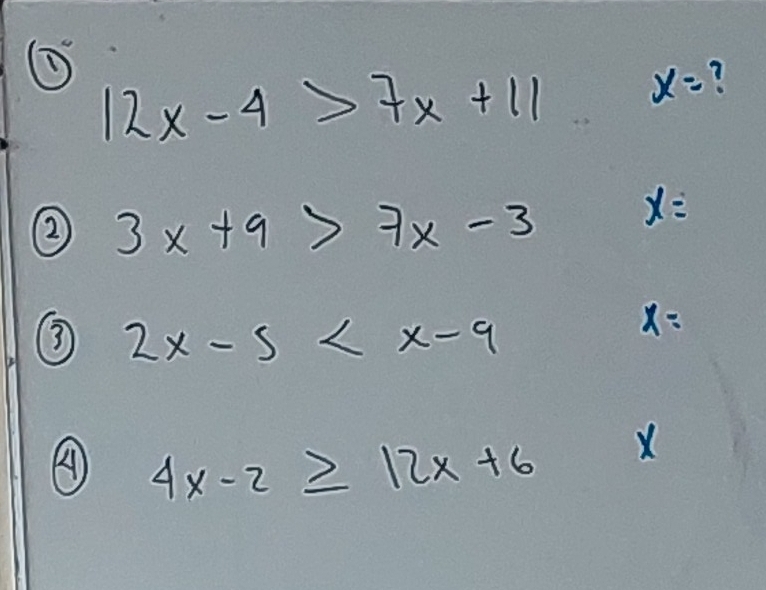 ① 12x - 4 > 7x + 11 x = ?
② 3x + 9 > 7x - 3 x =
③ 2x - 5 < x - 9 x =
④ 4x - 2 ≥ 12x + 6 x